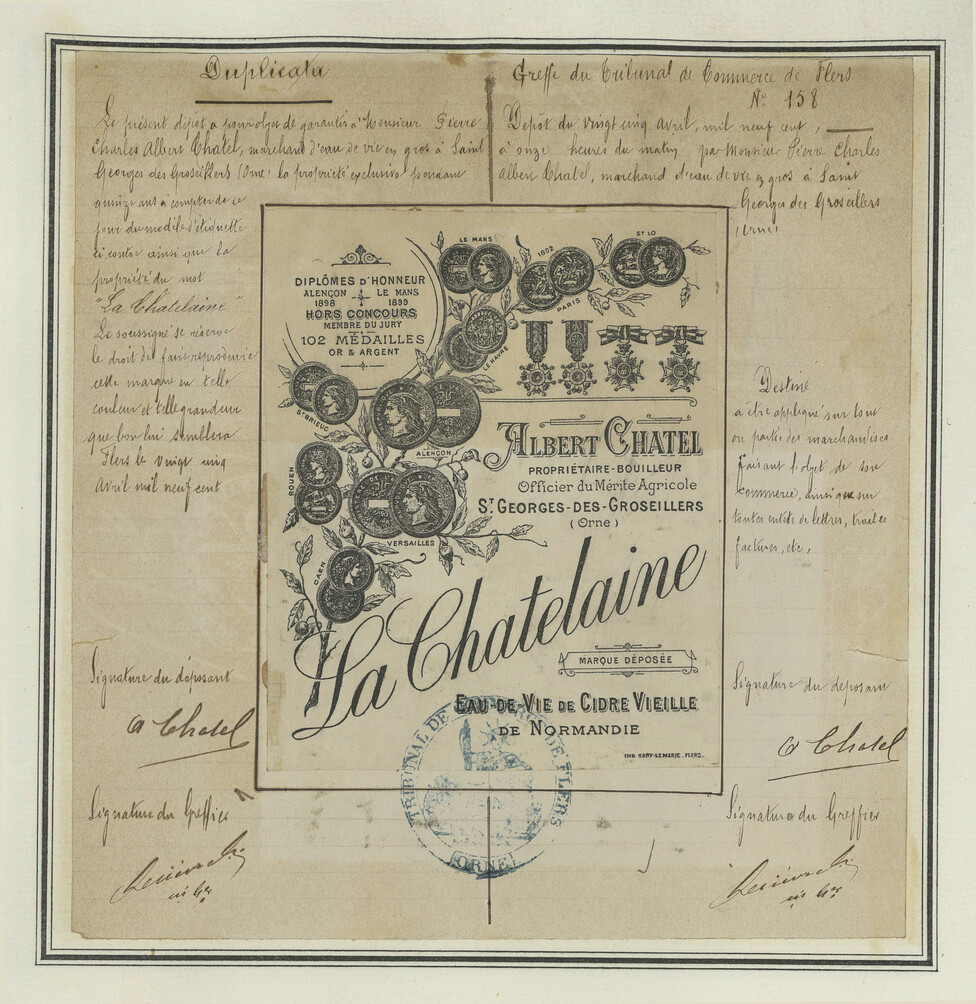 Duplicata
Le présent dépôt a pour objet de garantir à Monsieur Pierre
Charles Albert Chatel, marchand d'eau de vie en gros à Saint
Georges des Groseillers (Orne) la propriété exclusive pendant
quinze ans à compter de ce
jour du modèle d'étiquette
ci contre ainsi que la
propriété du mot
"La Chatelaine"
Le soussigné se réserve
le droit de faire reproduire
cette marque en telle
couleur et telle grandeur
que bon lui semblera
Flers le vingt cinq
Avril mil neuf cent
Signature du déposant
A Chatel
Signature du Greffier
Greffe du Tribunal de Commerce de Flers
N° 158
Dépôt du vingt cinq avril, mil neuf cent,
à onze heures du matin, par Monsieur Pierre Charles
Albert Chatel, marchand d'eau de vie en gros à Saint
Georges des Groseillers
(Orne)
Destiné
à être appliqué sur tout
ou partie des marchandises
faisant l'objet de son
commerce, ainsi que sur
toutes entête de lettres, traites
factures, etc,
Signature du déposant
A Chatel
Signature du Greffier
DIPLÔMES D'HONNEUR
ALENÇON LE MANS
1898 1899
HORS CONCOURS
MEMBRE DU JURY
102 MÉDAILLES
OR & ARGENT
LE MANS
1892
PARIS
ST LO
LE HAVRE
ST BRIEUC
ALENÇON
ROUEN
VERSAILLES
CAEN
ALBERT CHATEL
PROPRIÉTAIRE-BOUILLEUR
Officier du Mérite Agricole
ST GEORGES-DES-GROSEILLERS
(Orne)
La Chatelaine
MARQUE DÉPOSÉE
EAU-DE-VIE DE CIDRE VIEILLE
DE NORMANDIE
TRIBUNAL DE COMMERCE DE FLERS
(ORNE)